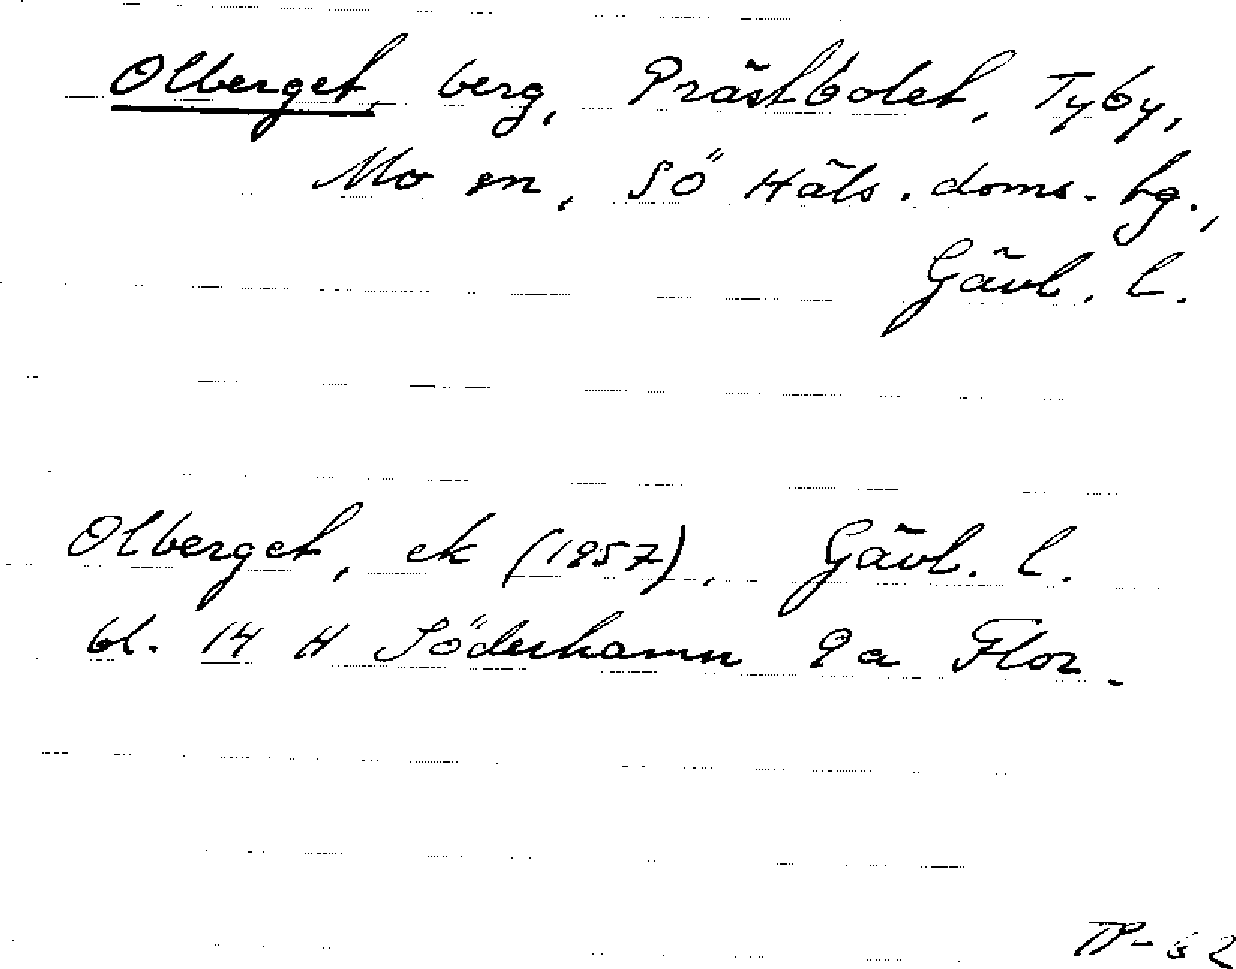 Olberget, berg, Prästbolet, Tyby,
Mo sn, Sö Häls. doms. hg.,
Gävl. l.
Olberget, ek (1957), Gävl. l.
bl. 14 H Söderhamn 9a Flor.
TP-62